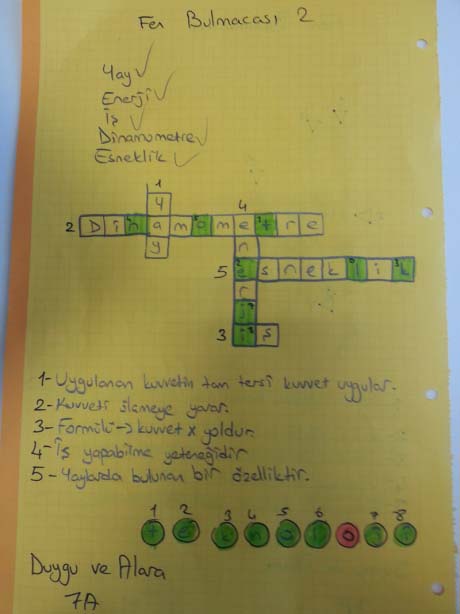 Fen Bulmacası 2
Yay
Enerji
İş
Dinamometre
Esneklik
1
4
y
2 Dinamometre
y
n
5 esneklik
r
j
3 iş
1-Uygulanan kuvvetin tam tersi kuvvet uygular.
2-Kuvveti ölçmeye yarar.
3-Formülü→kuvvet x yoldur.
4-İş yapabilme yeteneğidir
5-Yaylarda bulunan bir özelliktir.
1 2 3 4 5 6 7 8
t e k n o l o j i
Duygu ve Alara
7A